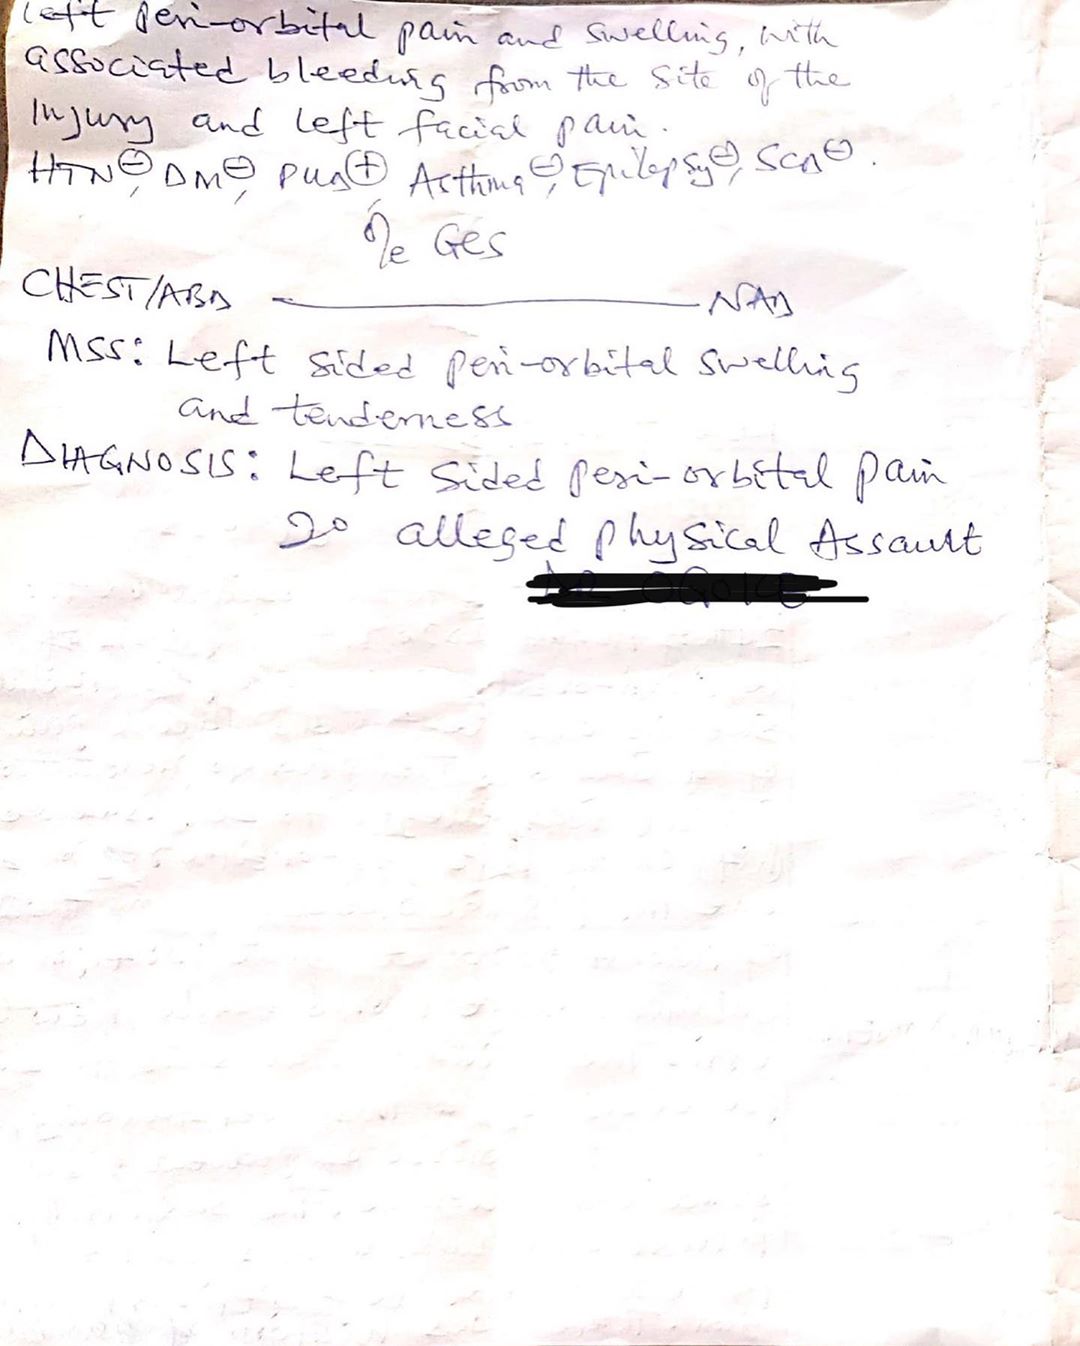 Left peri-orbital pain and swelling, with
associated bleeding from the site of the
Injury and left facial pain.
HTN⊖, DM⊖, PUD⊕, Asthma⊖, Epilepsy⊖, SCD⊖.
O/e GCS
CHEST/ABD ——— NAD
MSS: Left sided peri-orbital swelling
and tenderness
DIAGNOSIS: Left sided peri-orbital pain
2° alleged physical Assault